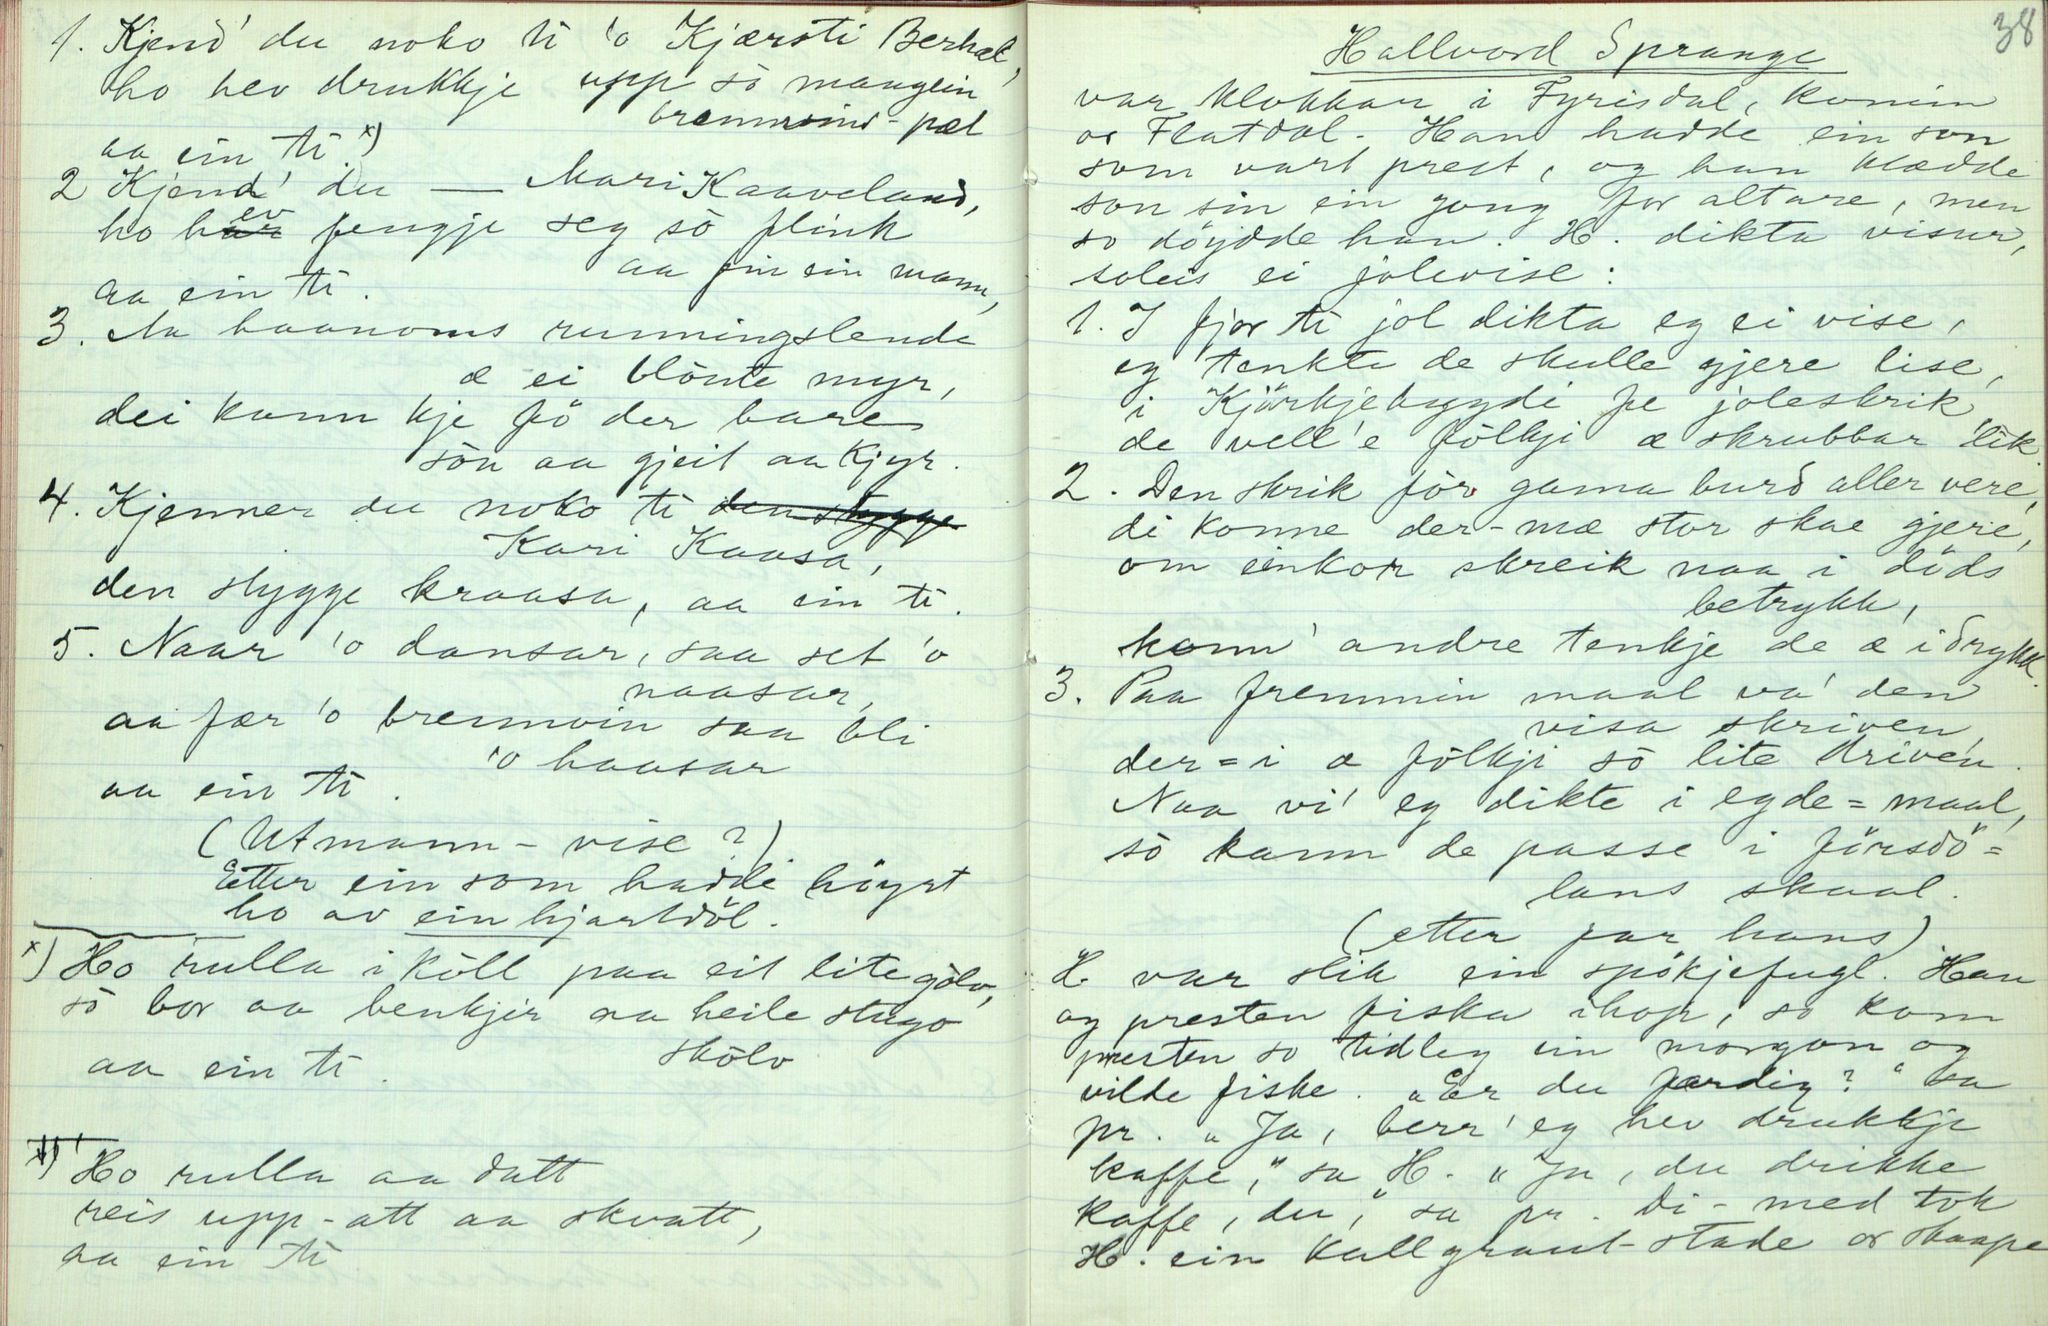 1. Kjend' du noko ti 'o Kjærsti Berhæl,
ho hev drukkje upp so mangein
brennvins-pæl
aa ein ti. x)
2 Kjend' du — Mari Kaaveland,
ho hev fengje seg so flink
aa fin ein mann,
aa ein ti.
3. Aa baanoms runningslende
æ ei blöute myr,
dei kann kje fö der bare
sön aa gjeit aa kjyr.
4. Kjenner du noko ti den stygge
Kari Kaasa,
den stygge kraasa, aa ein ti.
5. Naar 'o dansar, saa set 'o
naasar,
aa fær 'o brennvin saa bli
'o haasar
aa ein ti.
(Utmann-vise?)
Etter ein som hadde höyrt
ho av ein hjartdöl.
x) Ho rulla i köll paa eit lite golv,
so bor aa benkjir aa heile stugo
skolv
aa ein ti.
x) Ho rulla aa datt
reis upp-att aa skvatt,
aa ein ti
38
Hallvord Sprange
var klokkar i Fyrisdal, komin
or Flatdal. Han hadde ein son
som vart prest, og han klædde
son sin ein gong for altare, men
so döydde han. H. dikta visur,
soleis ei jolevise:
1. I fjor ti jol dikta eg ei vise,
eg tenkte de skulle gjere lise,
i Kjörkjebygdi fe joleskrik,
de vell'e fölkji æ skrubbar lik.
2. Den skrik för gama burd aller vere,
di konne der-mæ stor skae gjere,
om einkor skreik naa i döds
betrykk,
konn' andre tenkje de æ i drykk.
3. Paa fremmin maal va' den
visa skriven,
der=i æ fölkji so lite driven.
Naa vi' eg dikte i egde=maal,
so kann de passe i försdö=
lans skaal.
(etter far hans)
H. var slik ein spökjefugl. Han
og presten fiska ihop, so kom
presten so tidleg ein morgon og
vilde fiske. "Er du færdig?" sa
pr. "Ja, berr' eg hev drukkje
kaffe," sa H. "Ja, du drikke
kaffe, du," sa pr. Di-med tok
H. ein kallgraut-stade or skaape